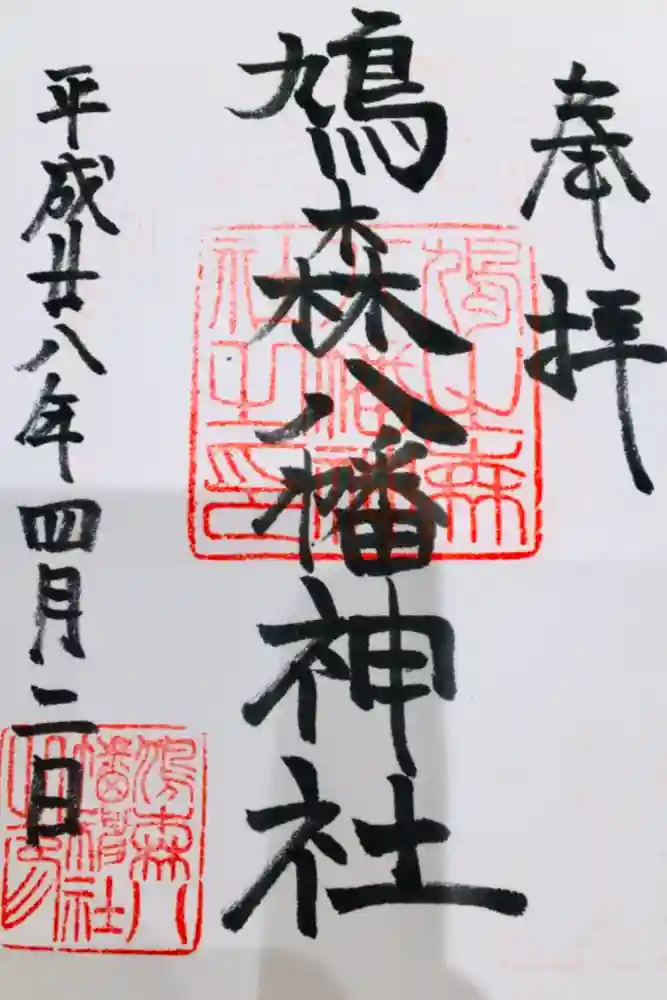 奉拝
鳩森八幡神社
平成廿八年四月二日